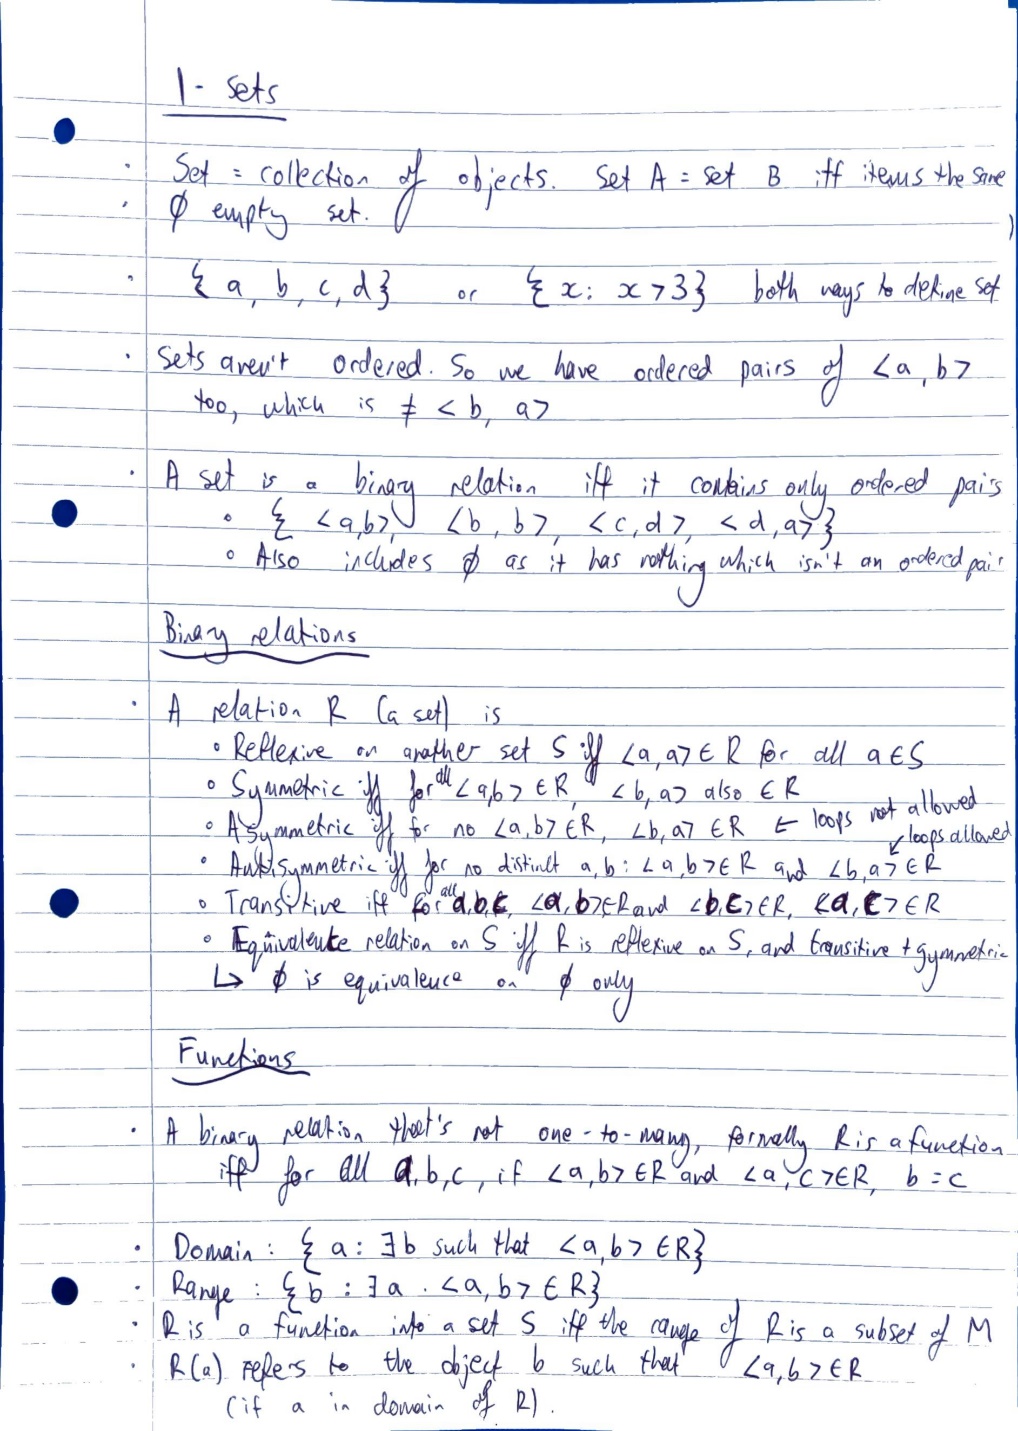 1- Sets
Set = collection of objects. Set A = set B iff items the same
∅ empty set.
{a, b, c, d} or {x: x>3} both ways to define set
Sets aren't ordered. So we have ordered pairs of <a, b>
too, which is ≠ <b, a>
A set is a binary relation iff it contains only ordered pairs
{<a,b>, <b, b>, <c,d>, <d,a>}
Also includes ∅ as it has nothing which isn't an ordered pair
Binary relations
A relation R (a set) is
Reflexive on another set S iff <a,a> ∈ R for all a∈S
Symmetric iff for all <a,b> ∈R, <b,a> also ∈R
Asymmetric iff for no <a,b>∈R, <b,a> ∈R ← loops not allowed
↙ loops allowed
Antisymmetric iff for no distinct a,b: <a,b>∈R and <b,a>∈R
Transitive iff for all a,b,c, <a,b>∈R and <b,c>∈R, <a,c>∈R
Equivalence relation on S iff R is reflexive on S, and transitive + symmetric
↳ ∅ is equivalence on ∅ only
Functions
A binary relation that's not one-to-many, formally R is a function
iff for all a,b,c, if <a,b>∈R and <a,c>∈R, b=c
Domain: {a: ∃b such that <a,b>∈R}
Range: {b : ∃a . <a,b>∈R}
R is a function into a set S iff the range of R is a subset of M
R(a) refers to the object b such that <a,b>∈R
(if a in domain of R).